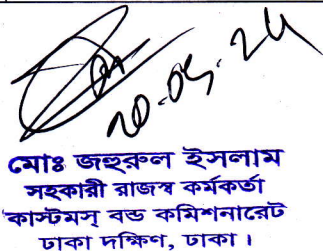 ২০.০৫.২৪
মোঃ জহুরুল ইসলাম
সহকারী রাজস্ব কর্মকর্তা
কাস্টমস্ বন্ড কমিশনারেট
ঢাকা দক্ষিণ, ঢাকা।